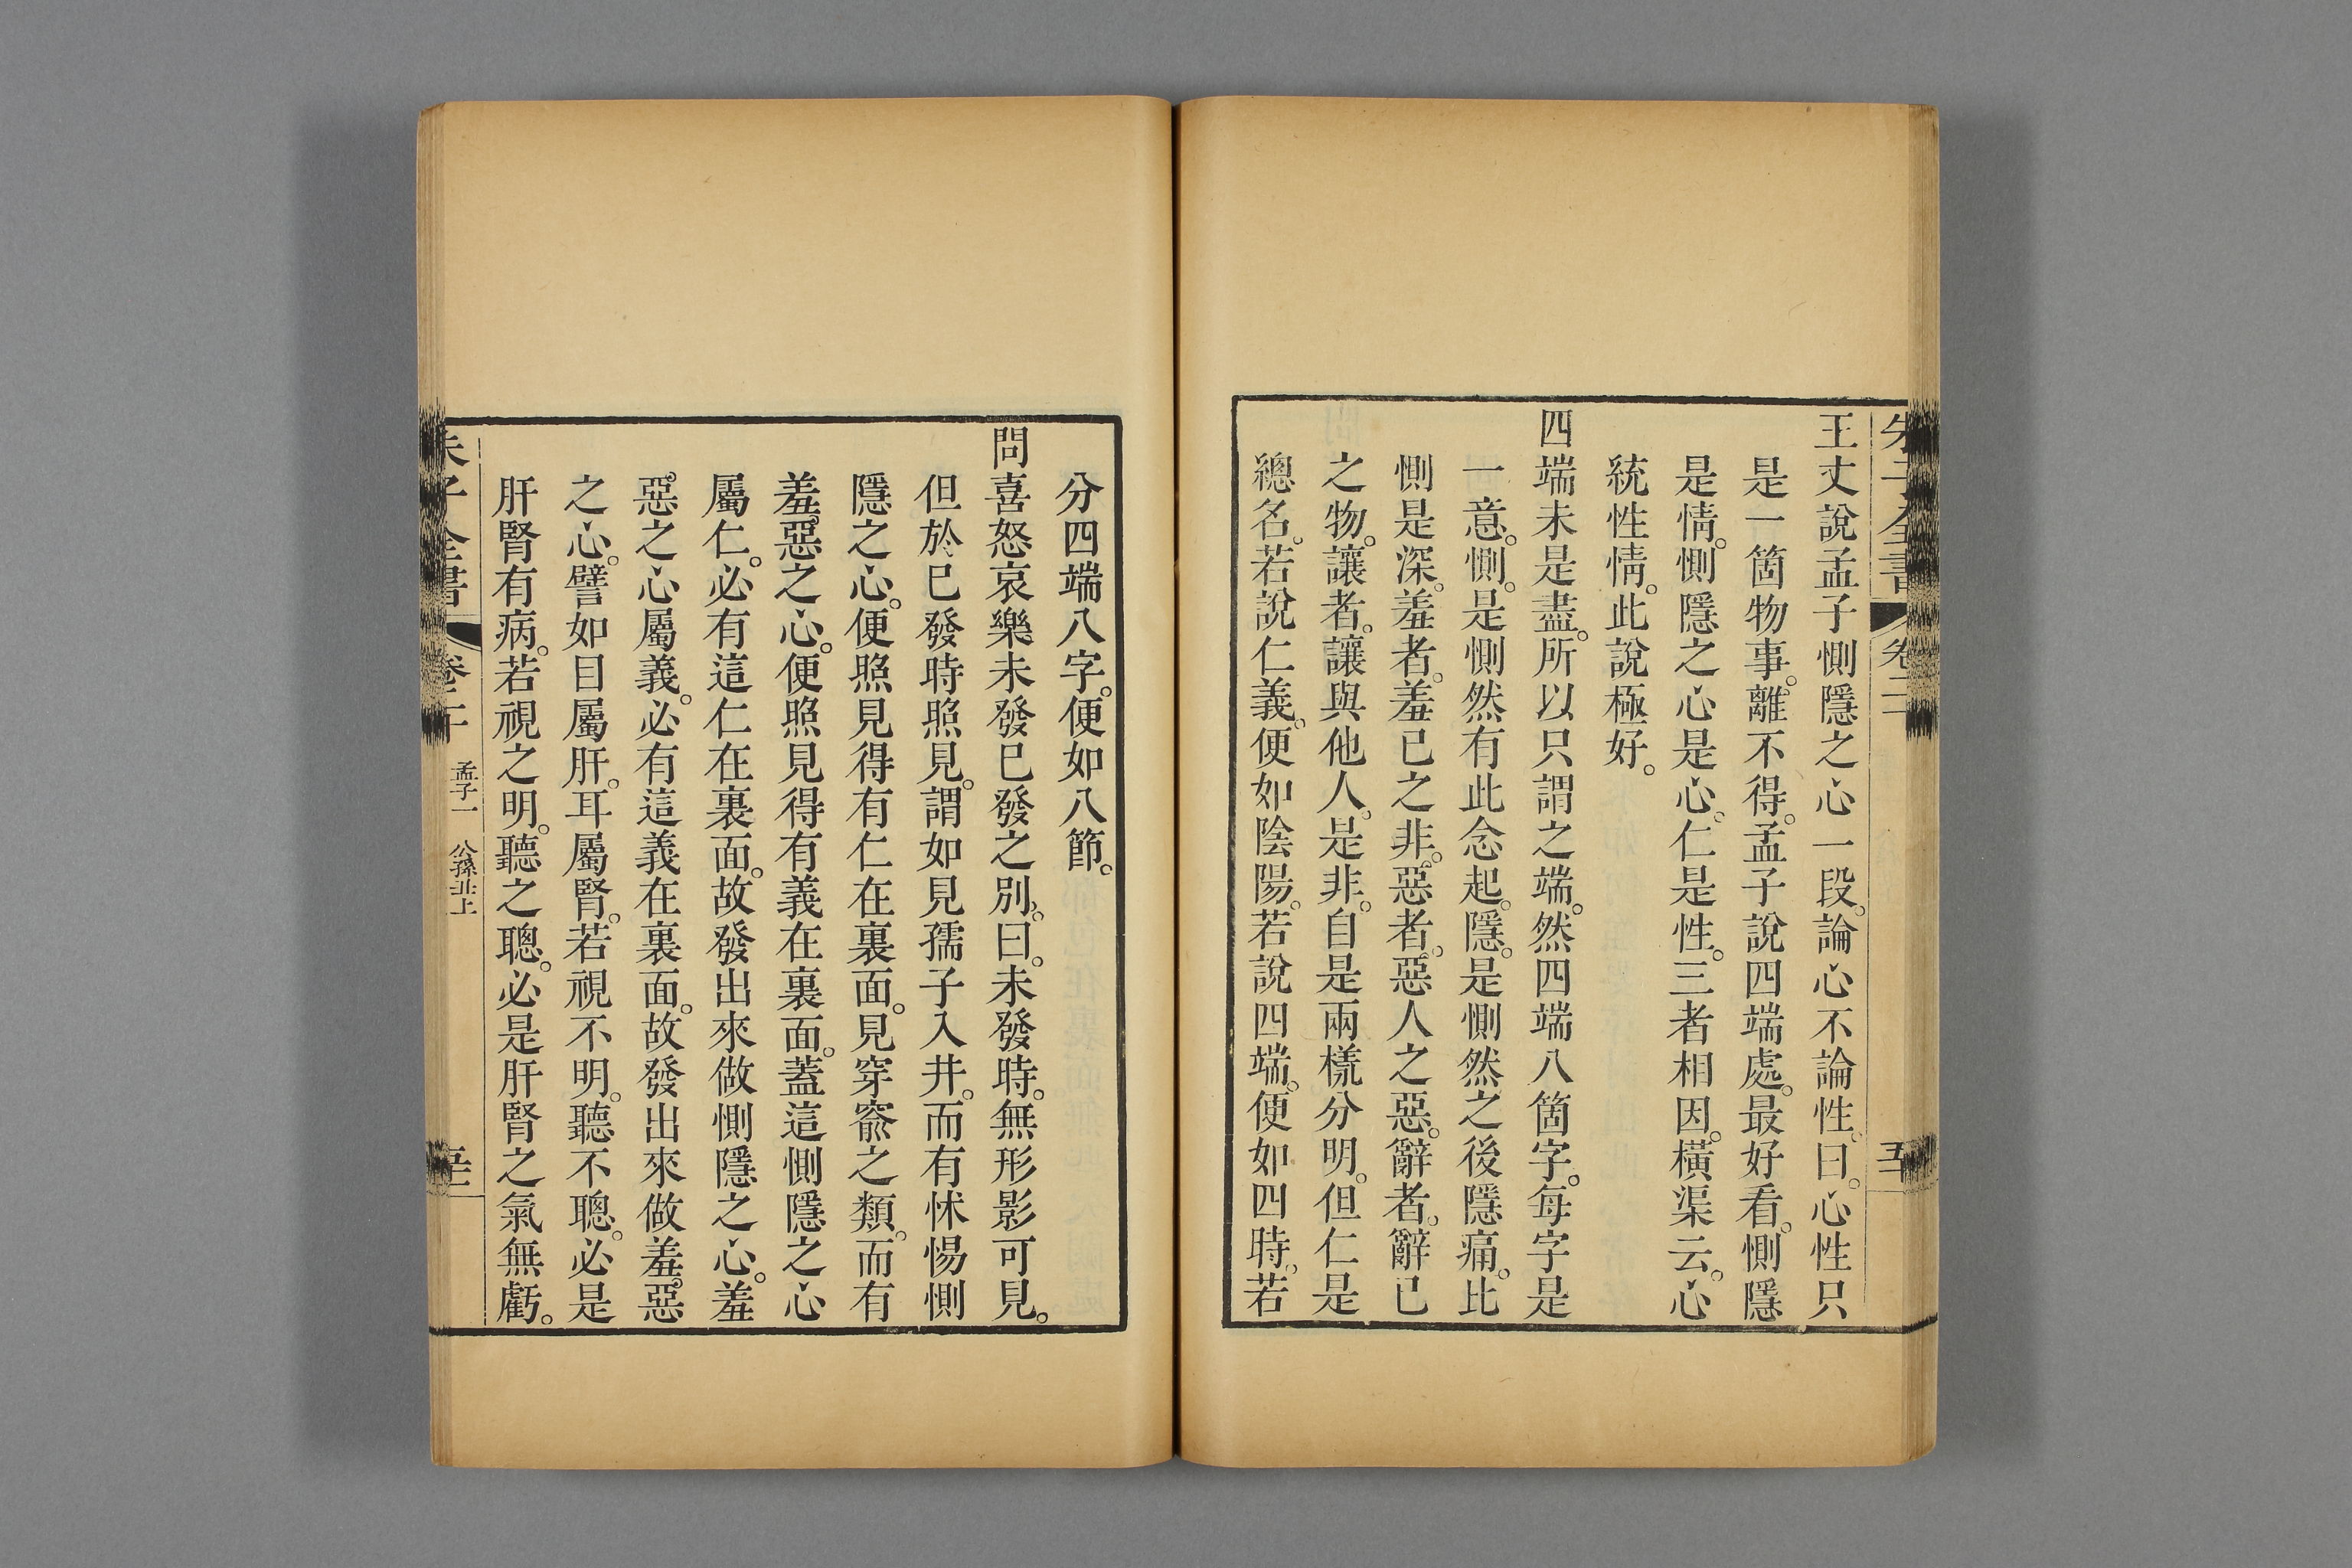 朱子全書 卷二十 五十
王丈說孟子惻隱之心一段。論心不論性。曰。心性只
是一箇物事。離不得。孟子說四端處。最好看。惻隱
是情。惻隱之心是心。仁是性。三者相因。橫渠云。心
統性情。此說極好。
四端未是盡。所以只謂之端。然四端八箇字。每字是
一意。惻。是惻然有此念起。隱。是惻然之後隱痛。比
惻是深。羞者。羞已之非。惡者。惡人之惡。辭者。辭已
之物。讓者。讓與他人。是非。自是兩樣分明。但仁是
總名。若說仁義。便如陰陽。若說四端。便如四時。若
分四端八字。便如八節。
問喜怒哀樂未發已發之別。曰。未發時。無形影可見。
但於已發時照見。謂如見孺子入井。而有怵惕惻
隱之心。便照見得有仁在裏面。見穿窬之類。而有
羞惡之心。便照見得有義在裏面。蓋這惻隱之心
屬仁。必有這仁在裏面。故發出來做惻隱之心。羞
惡之心屬義。必有這義在裏面。故發出來做羞惡
之心。譬如目屬肝。耳屬腎。若視不明。聽不聰。必是
肝腎有病。若視之明。聽之聰。必是肝腎之氣無虧。
朱子全書 卷二十 孟子一 公孫丑上